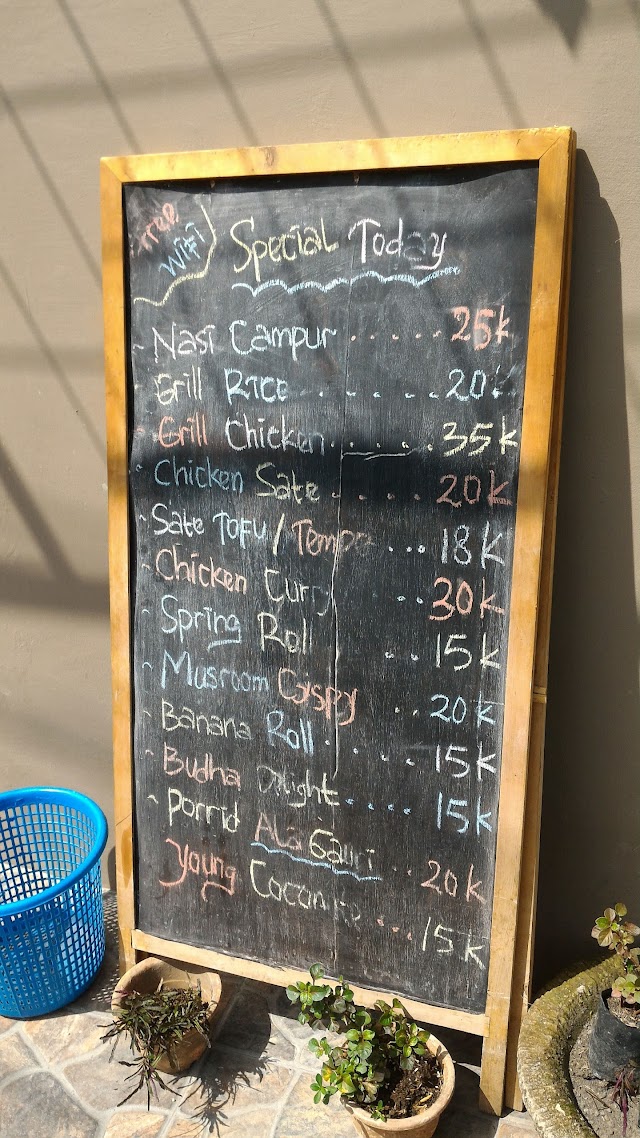 Free
WiFi
Special Today
- Nasi Campur ..... 25k
- Grill Rice ..... 20k
- Grill Chicken .... 35k
- Chicken Sate .... 20k
- Sate Tofu / Tempe ... 18k
- Chicken Curry .. 30k
- Spring Roll .. 15k
- Musroom Crispy .. 20k
- Banana Roll .... 15k
- Budha Delight .... 15k
- Porrid Ala Gauri .. 20k
Young Coconut ... 15k